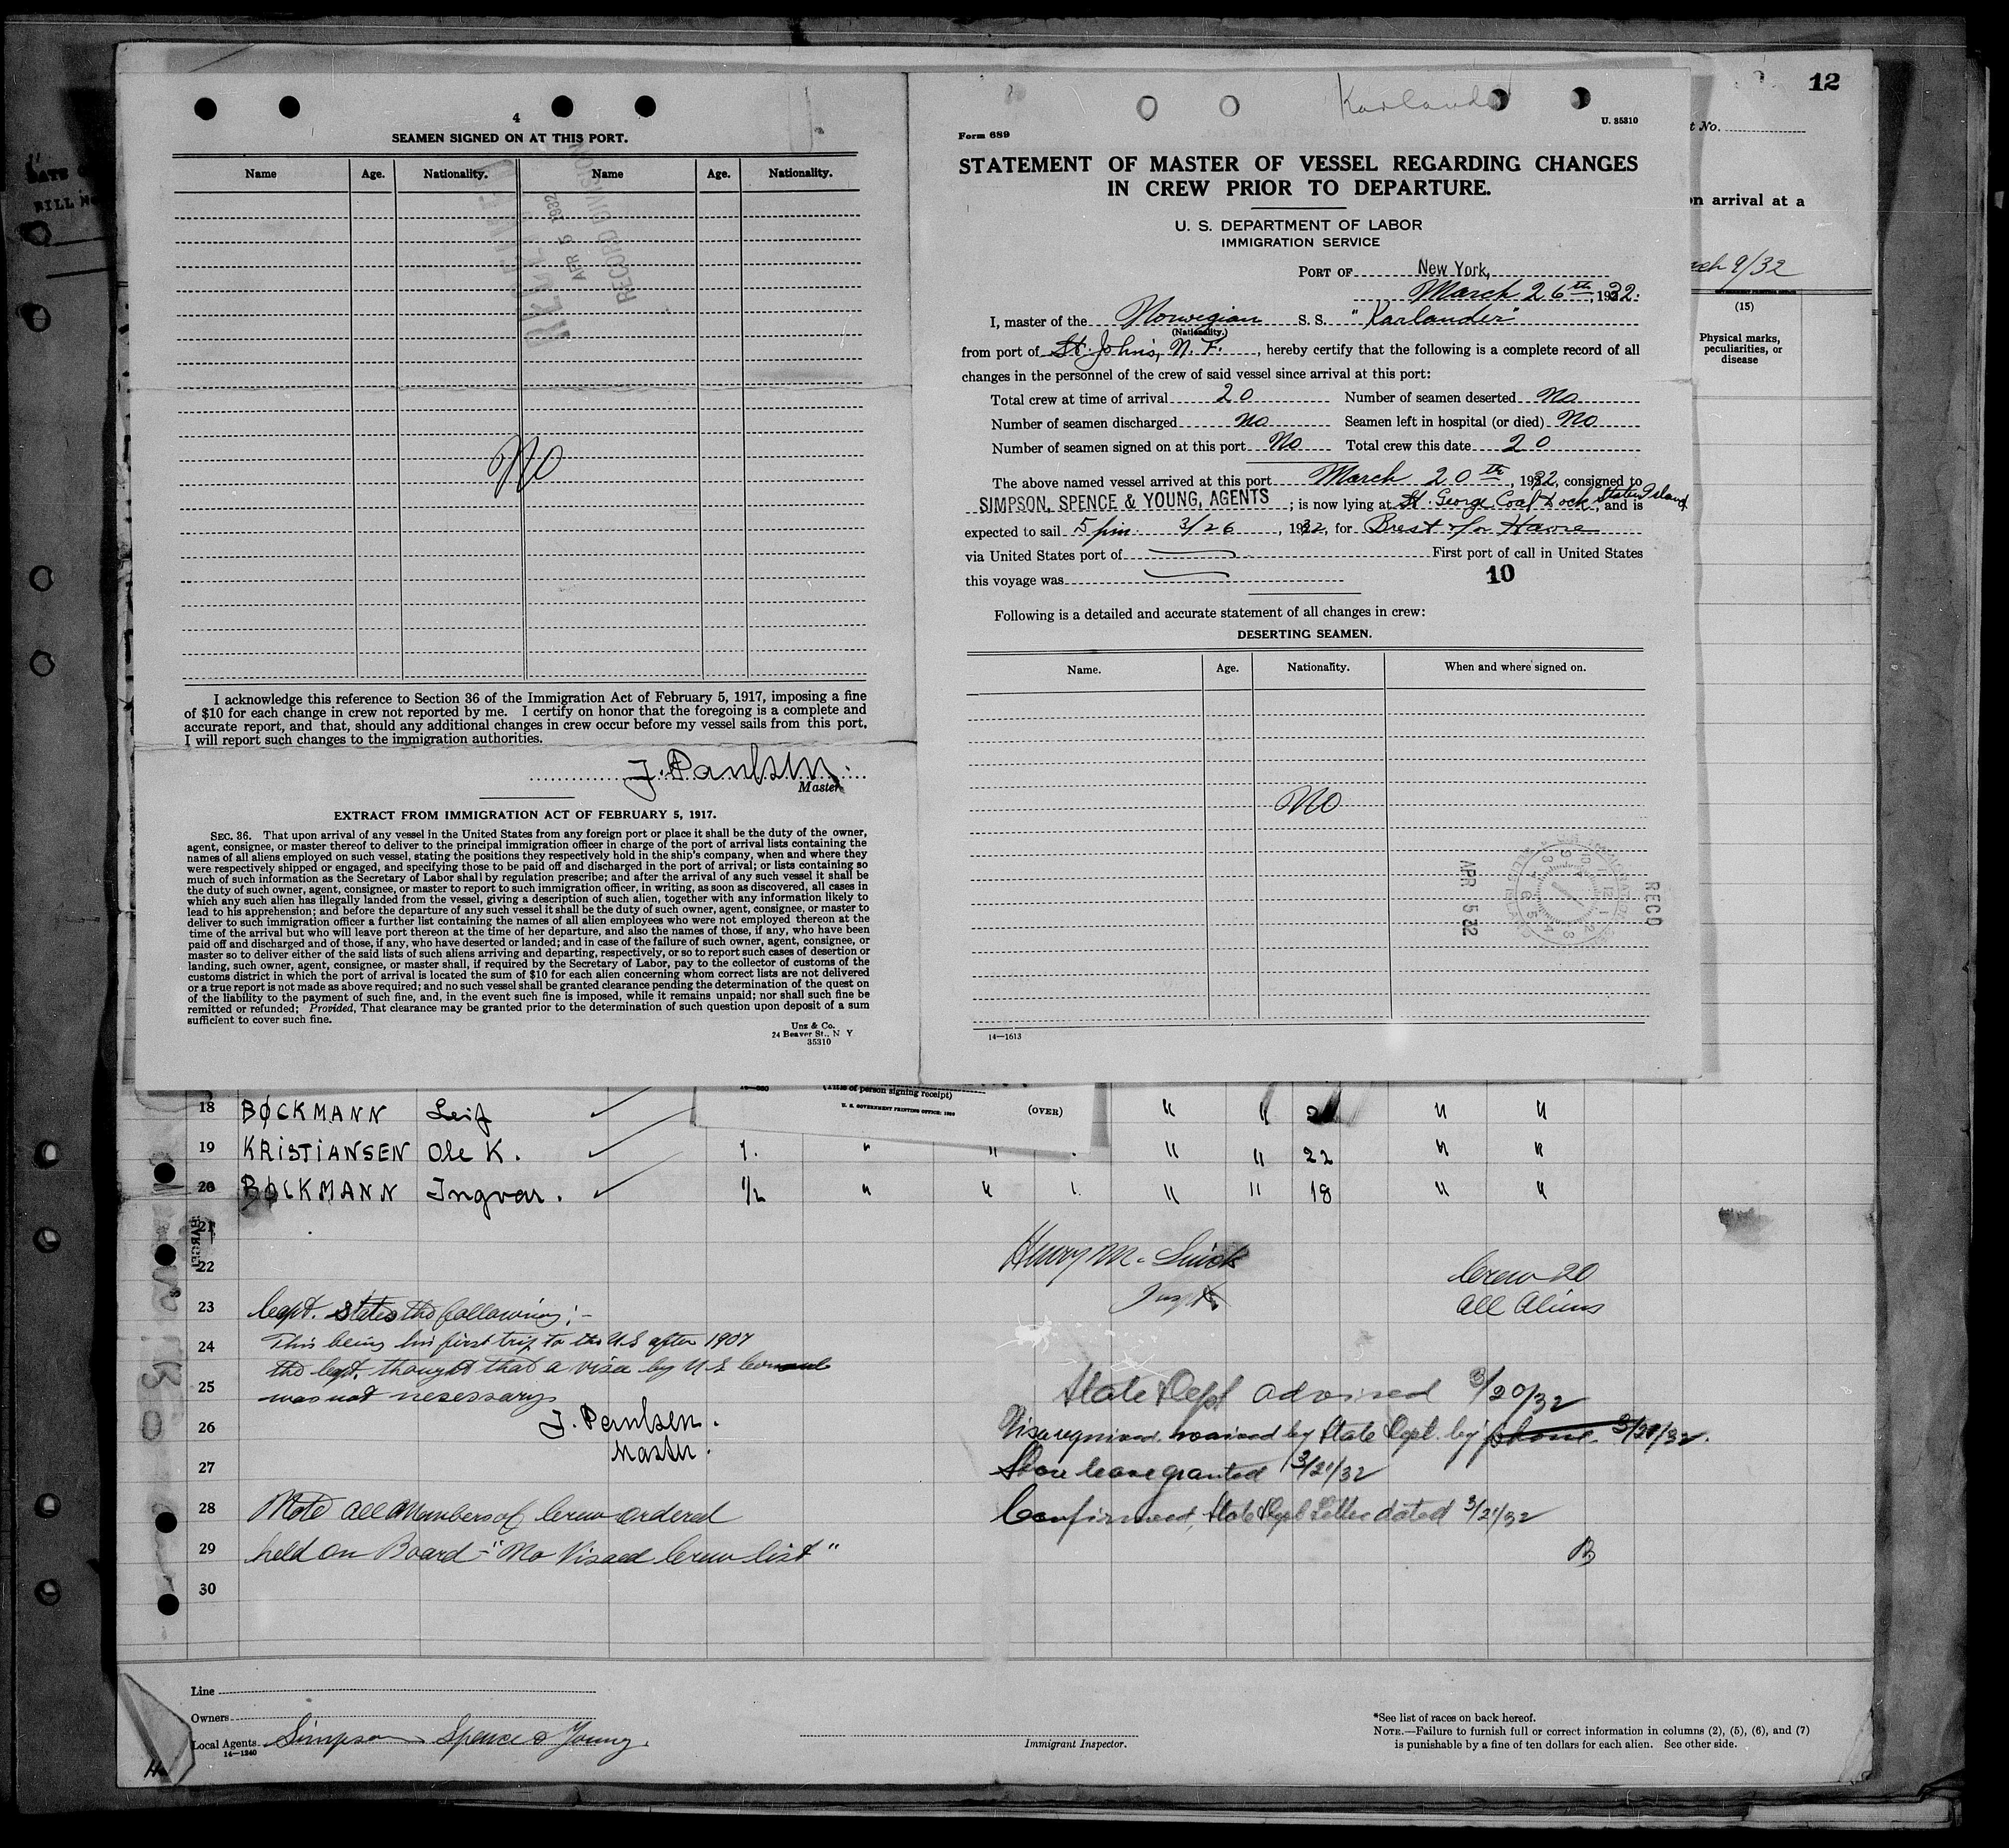 12
4
SEAMEN SIGNED ON AT THIS PORT.
Name Age. Nationality. Name Age. Nationality.
APR 5 1932
RECORD DIVISION
No
I acknowledge this reference to Section 36 of the Immigration Act of February 5, 1917, imposing a fine
of $10 for each change in crew not reported by me. I certify on honor that the foregoing is a complete and
accurate report, and that, should any additional changes in crew occur before my vessel sails from this port,
I will report such changes to the immigration authorities.
J. Paulsen.
Master
EXTRACT FROM IMMIGRATION ACT OF FEBRUARY 5, 1917.
SEC. 36. That upon arrival of any vessel in the United States from any foreign port or place it shall be the duty of the owner,
agent, consignee, or master thereof to deliver to the principal immigration officer in charge of the port of arrival lists containing the
names of all aliens employed on such vessel, stating the positions they respectively hold in the ship's company, when and where they
were respectively shipped or engaged, and specifying those to be paid off and discharged in the port of arrival; or lists containing so
much of such information as the Secretary of Labor shall by regulation prescribe; and after the arrival of any such vessel it shall be
the duty of such owner, agent, consignee, or master to report to such immigration officer, in writing, as soon as discovered, all cases in
which any such alien has illegally landed from the vessel, giving a description of such alien, together with any information likely to
lead to his apprehension; and before the departure of any such vessel it shall be the duty of such owner, agent, consignee, or master to
deliver to such immigration officer a further list containing the names of all alien employees who were not employed thereon at the
time of the arrival but who will leave port thereon at the time of her departure, and also the names of those, if any, who have been
paid off and discharged and of those, if any, who have deserted or landed; and in case of the failure of such owner, agent, consignee, or
master so to deliver either of the said lists of such aliens arriving and departing, respectively, or so to report such cases of desertion or
landing, such owner, agent, consignee, or master shall, if required by the Secretary of Labor, pay to the collector of customs of the
customs district in which the port of arrival is located the sum of $10 for each alien concerning whom correct lists are not delivered
or a true report is not made as above required; and no such vessel shall be granted clearance pending the determination of the quest on
of the liability to the payment of such fine, and, in the event such fine is imposed, while it remains unpaid; nor shall such fine be
remitted or refunded; Provided, That clearance may be granted prior to the determination of such question upon deposit of a sum
sufficient to cover such fine.
Unz & Co.
24 Beaver St., N Y
35310
Karlander
U. 35310
Form 689
STATEMENT OF MASTER OF VESSEL REGARDING CHANGES
IN CREW PRIOR TO DEPARTURE.
U. S. DEPARTMENT OF LABOR
IMMIGRATION SERVICE
PORT OF New York,
March 26th, 1932.
I, master of the Norwegian S. S. "Karlander"
(Nationality.)
from port of St. John's, N. F., hereby certify that the following is a complete record of all
changes in the personnel of the crew of said vessel since arrival at this port:
Total crew at time of arrival 20 Number of seamen deserted No
Number of seamen discharged No Seamen left in hospital (or died) No
Number of seamen signed on at this port No Total crew this date 20
The above named vessel arrived at this port March 20th, 1932, consigned to
SIMPSON, SPENCE & YOUNG, AGENTS; is now lying at St. George Coal Dock, Staten Island, and is
expected to sail 5 pm 3/26, 1932, for Brest f/or Havre
via United States port of First port of call in United States
this voyage was
10
Following is a detailed and accurate statement of all changes in crew:
DESERTING SEAMEN.
Name. Age. Nationality. When and where signed on.
No
RECD
APR 5 32
14—1613
t No.
on arrival at a
9/32
(15)
Physical marks,
peculiarities, or
disease
(Title of person signing receipt)
(OVER)
18 BØCKMANN Leif " " " "
19 KRISTIANSEN Ole K. 1. " " " " 22 " "
20 BØCKMANN Ingvar. 1/2 " " 1. " " 18 " "
21
22
23
24
25
26
27
28
29
30
Capt. states the following:-
This being his first trip to the U.S after 1907
the Capt. thought that a visa by U S Consul
was not nesessary
J. Paulsen.
Master.
Note all Members of Crew ordered
held on Board - "No Visaed Crew list"
Henry M.
Inspt.
Crew 20
all Aliens
State Dept advised 3/20/32
waived by State Dept. by phone
Shore leave granted 3/21/32
Confirmed, State Dept Letter dated 3/21/32
Line
Owners
Local Agents Simpson Spence & Young.
14—1240
Immigrant Inspector.
*See list of races on back hereof.
NOTE.—Failure to furnish full or correct information in columns (2), (5), (6), and (7)
is punishable by a fine of ten dollars for each alien. See other side.